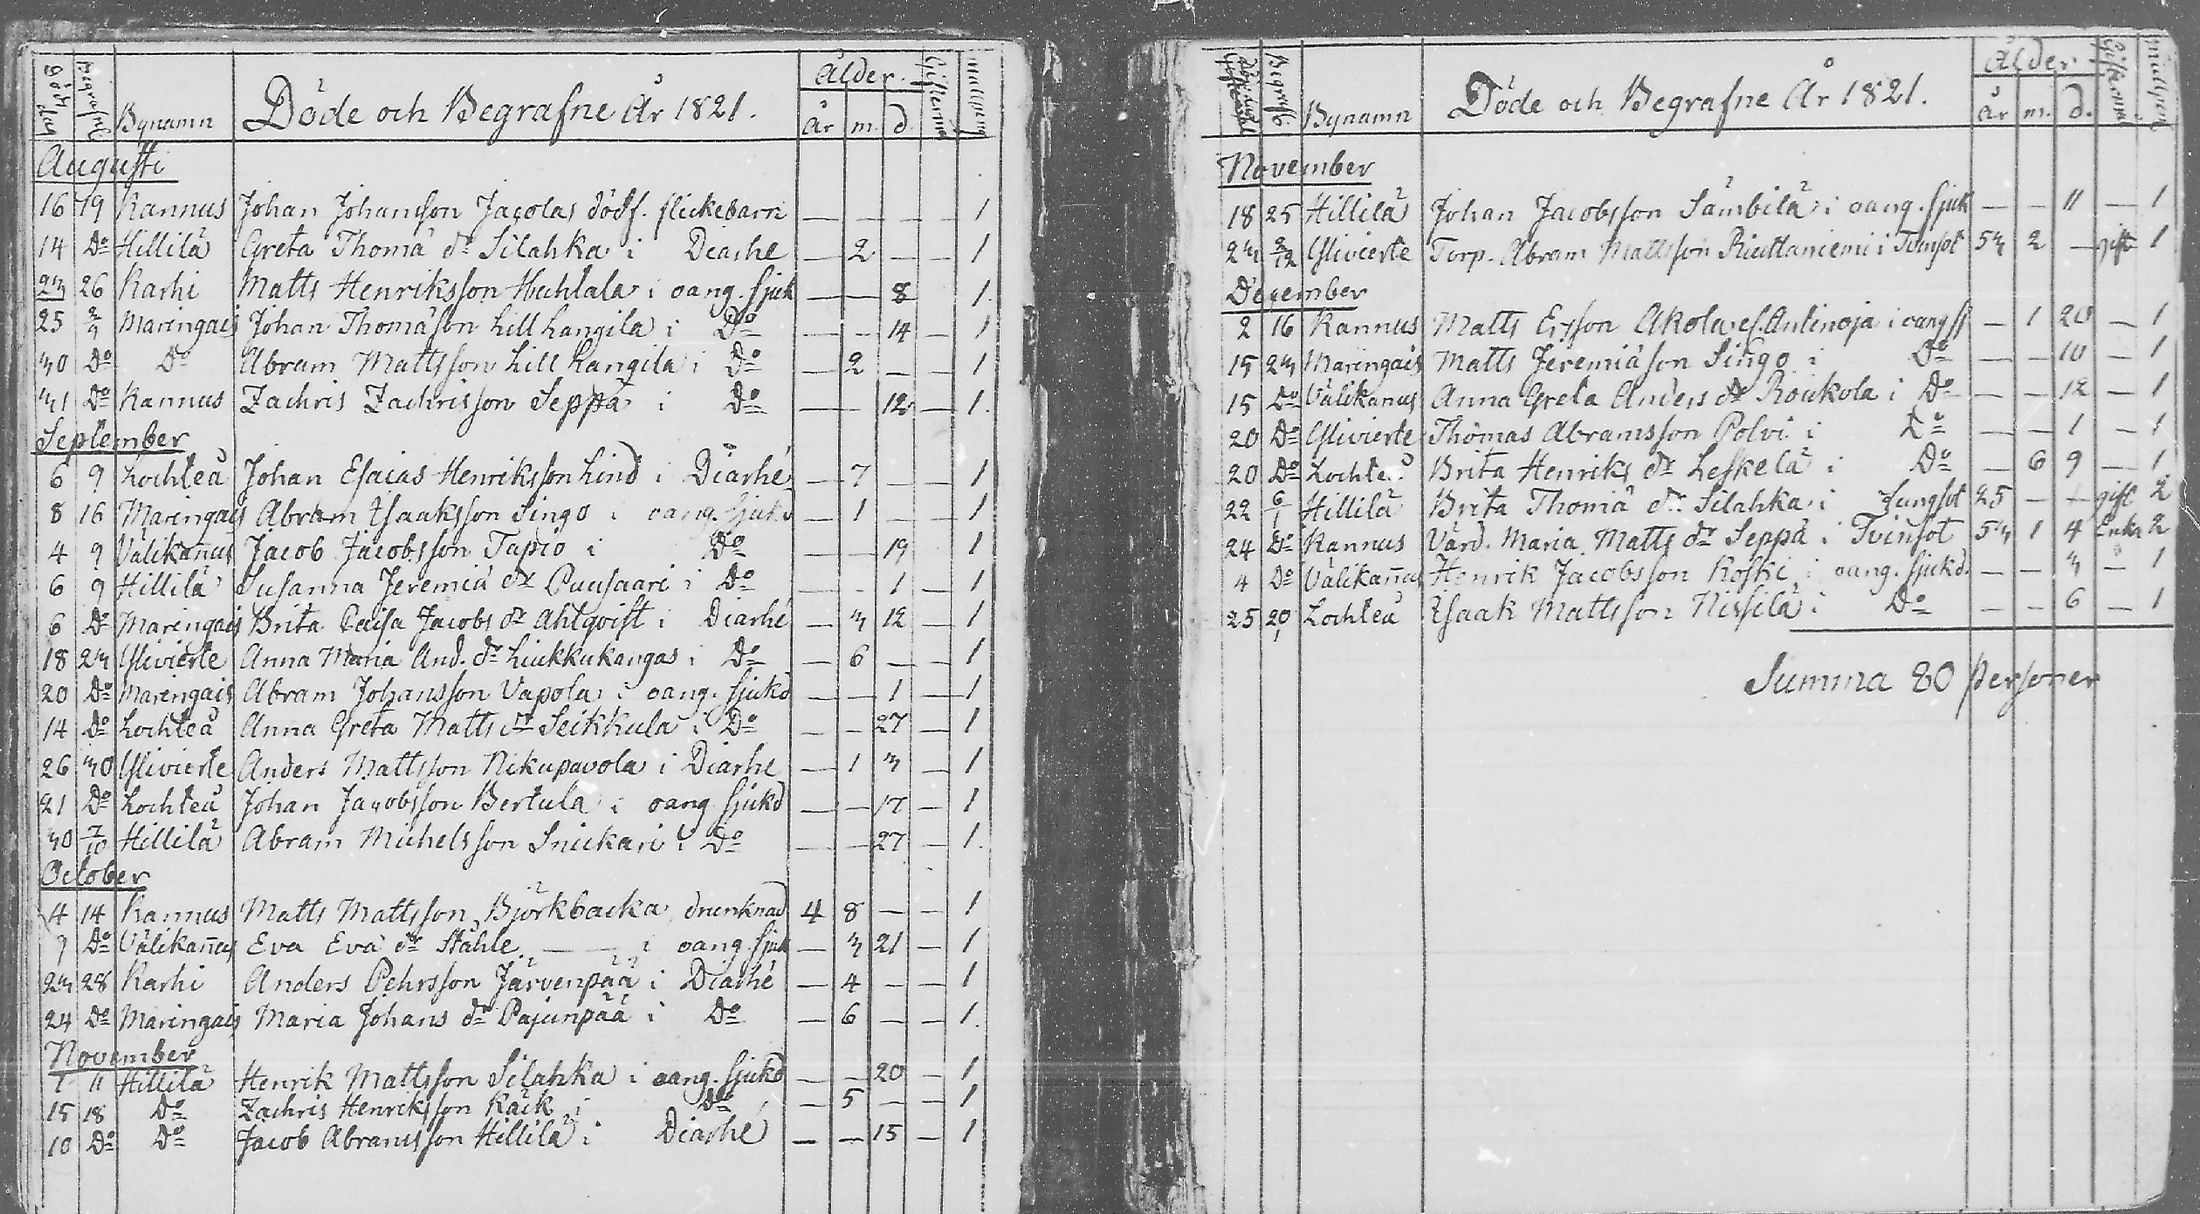 Död dag Begrafne Bynamn Döde och Begrafne År 1821. Ålder. år m. d.
Augusti
16 19 Kannus Johan Johansson Jacolas dödf. flickebarn — — — — 1
14 Do Hillilä Greta Thomä dr Silahka i Diarhé — 2 — — 1
23 26 Karhi Matts Henriksson Huhtala i oang. sjuk — — 8 1.
25 2/9 Maringais Johan Thomäson Lill Kangila i Do — — 14 — 1
30 Do Do Abram Mattsson Lill Kangila i Do — 2 — — 1
31 Do Kannus Zachris Zachrisson Seppä i Do — — 12 — 1.
September
6 9 Lochteå Johan Esaias Henriksson Lind i Diarhé — 7 — — 1
8 16 Maringais Abram Isaaksson Singo i oang. sjukd — 1 — — 1
4 9 Välikanus Jacob Jacobsson Tapio i Do — — 19 1
6 9 Hillilä Susanna Jeremiä dr Puusaari i Do — — 1 — 1
6 Do Maringais Brita Caisa Jacobs dr Ahlqvist i Diarhé — 3 12 — 1
18 23 Ylivierte Anna Maria And. dr Liukkukangas i Do — 6 — — 1
20 Do Maringais Abram Johansson Vapola i oang. sjukd — — 1 — 1
14 Do Lochteå Anna Greta Matts dr Seikkula i Do — — 27 — 1
26 30 Ylivierte Anders Mattsson Nikupavola i Diarhé — 1 3 — 1
21 Do Lochteå Johan Jacobsson Bertula i oang. sjukd — — 17 — 1
30 7/10 Hillilä Abram Michelsson Snickari i Do — — 27 — 1.
October
4 14 Kannus Matts Mattsson Björkbacka, drunknad 4 8 — — 1
7 Do Välikan̄us Eva Eva dr Ståhle — i oang. sjuk — 3 21 — 1
23 28 Karhi Anders Pehrsson Järvenpää i Diarhé — 4 — — 1
24 Do Maringais Maria Johans dr Pajunpää i Do — 6 — — 1.
November
1 11 Hillilä Henrik Mattsson Silahka i oang. sjukd — — 20 — 1
15 18 Do Zachris Henriksson Käck i Do — 5 — — 1
10 Do Do Jacob Abramsson Hillilä i Diarhé — — 15 — 1
Bynamn Döde och Begrafne År 1821. Ålder. år m. d.
November
18 25 Hillilä Johan Jacobsson Sämbilä i oang. sjuk — — 11 — 1
23 2/12 Ylivierte Torp. Abram Mattsson Riuttaniemi i Tvinsot 53 2 — gift 1
December
2 16 Kannus Matts Ersson Akola el. Antinoja i oang sj — 1 20 — 1
15 23 Maringais Matts Jeremiäson Singo i Do — — 10 — 1
15 Do Välikanus Anna Greta Anders dr Roukola i Do — — 12 — 1
20 Do Ylivierte Thomas Abramsson Polvi i Do — — 1 — 1
20 Do Lochteå Brita Henriks dr Leskelä i Do — 6 9 — 1
22 6/1 Hillilä Brita Thomä dr Silahka i Lungsot 25 — — gift 2
24 Do Kannus Värd. Maria Matts dr Seppä i Tvinsot 53 1 4 Enka 2
4 Do Välikan̄us Henrik Jacobsson Koski i oang. sjukd. — — 3 — 1
25 20/1 Lochteå Isaak Mattsson Nissilä i Do — — 6 — 1
Summa 80 Personer